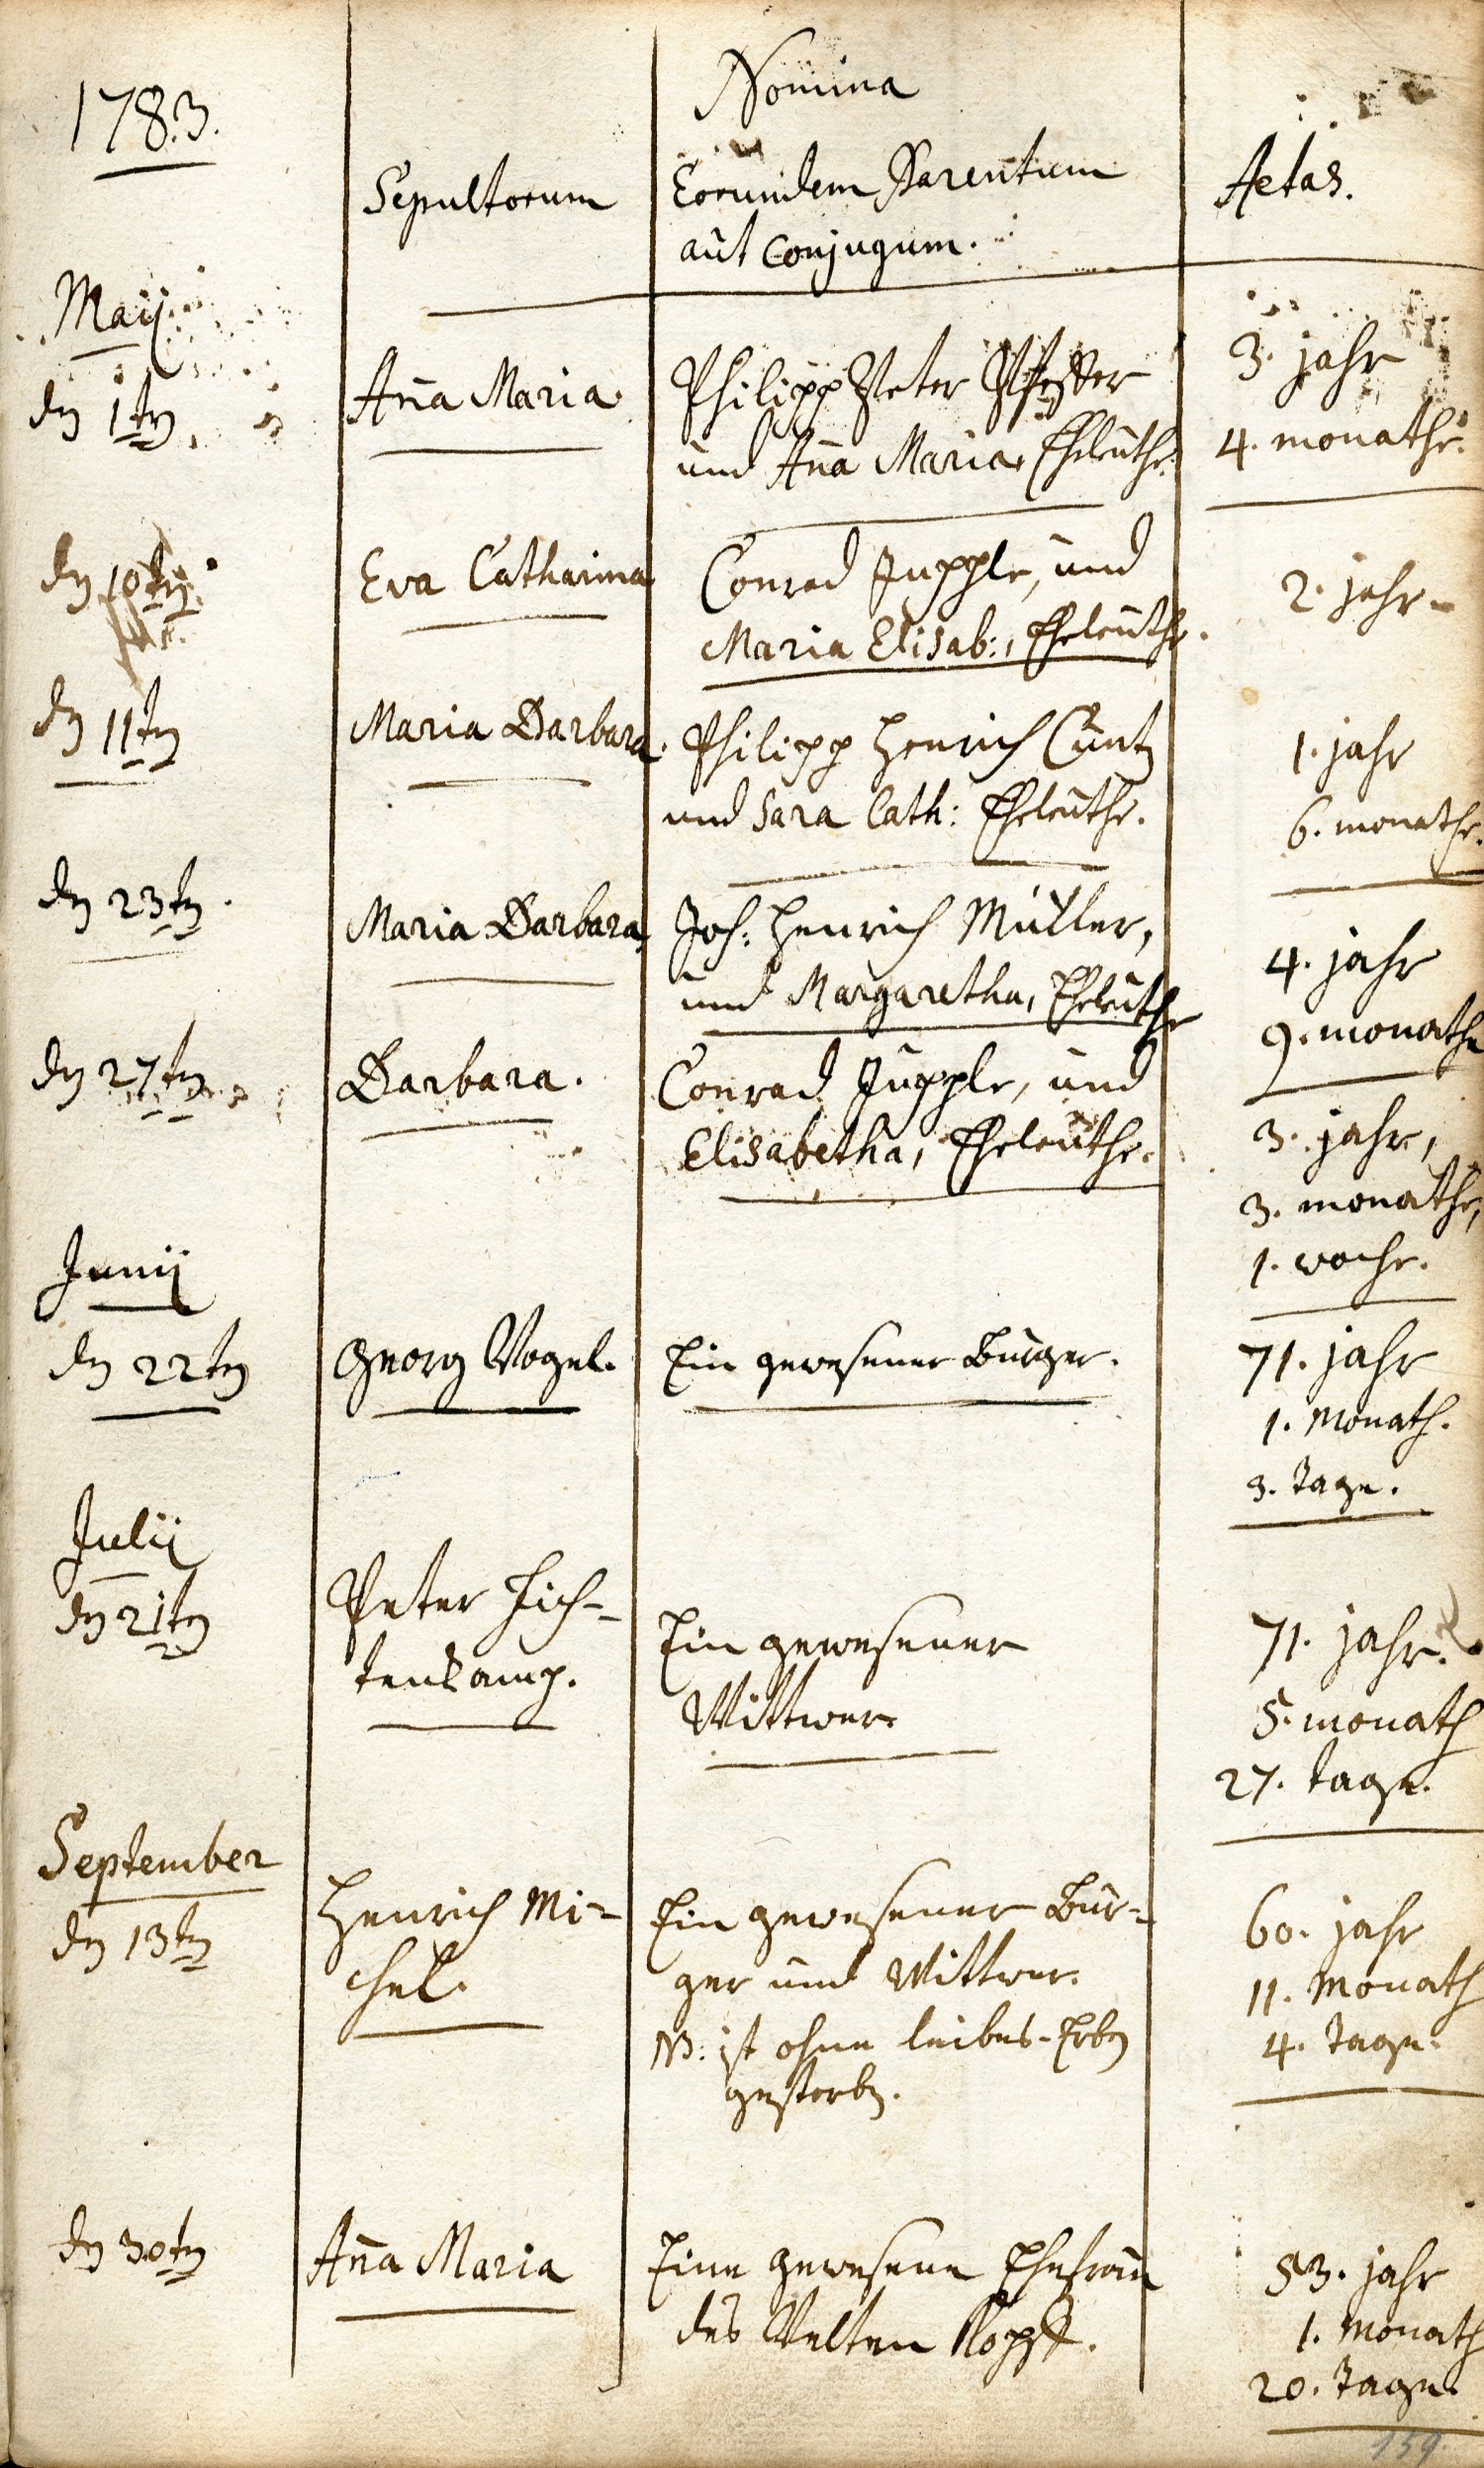 1783.
Nomina
Sepultorum
Eorundem Parentum
aut Conjugum.
Aetas.
Maij
dn 1tn
Aña Maria
Philipp Peter
und Aña Maria, Eheleuthe.
3. jahr
4. monathe.
dn 10tn
Eva Catharina
Conrad Jupple, und
Maria Elisab:, Eheleuthe.
2. jahr
dn 11tn
Maria Barbara.
Philipp Henrich Cuntz
und Sara Cath: Eheleuthe.
1. jahr
6. monathe.
dn 23tn.
Maria Barbara,
Joh: Henrich Müller,
und Margaretha, Eheleuthe
4. jahr
9. monathe
dn 27tn
Barbara.
Conrad Jupple, und
Elisabetha, Eheleuthe.
3. jahr,
3. monathe,
1. woche.
Junij
dn 22tn
Georg Vogel.
Ein gewesener Burger.
71. jahr
1. Monath.
3. Tage.
Julij
dn 21tn
Peter Fich-
tenkamp.
Ein gewesener
Wittwer
71. jahr.
5. monath
27. tage.
September
dn 13tn
Henrich Mi-
chel.
Ein gewesener Bur-
ger und Wittwer.
NB: ist ohne leibes-Erbn
gestorbn.
60. jahr
11. Monath
4. Tage.
dn 30tn
Aña Maria
Eine gewesene Ehefrau
des Velten Kopff.
53. jahr
1. Monath
20. Tage.
159.